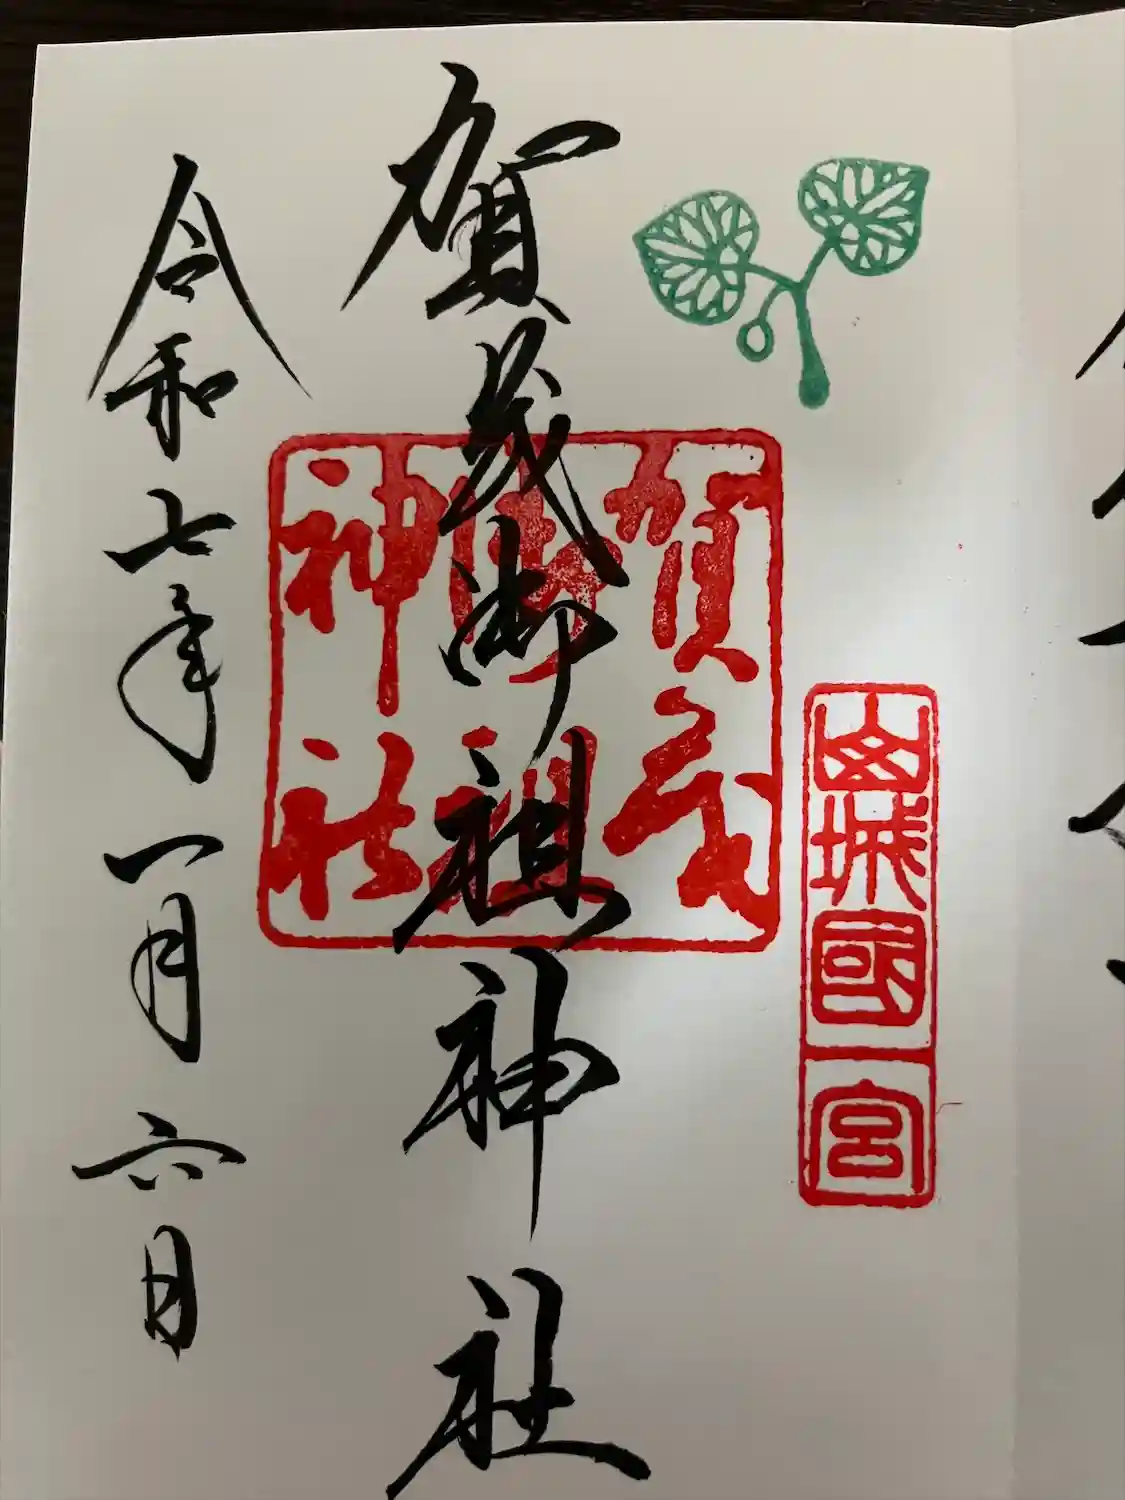 山城國一宮
賀茂御祖神社
賀茂
御祖
神社
令和七年一月六日